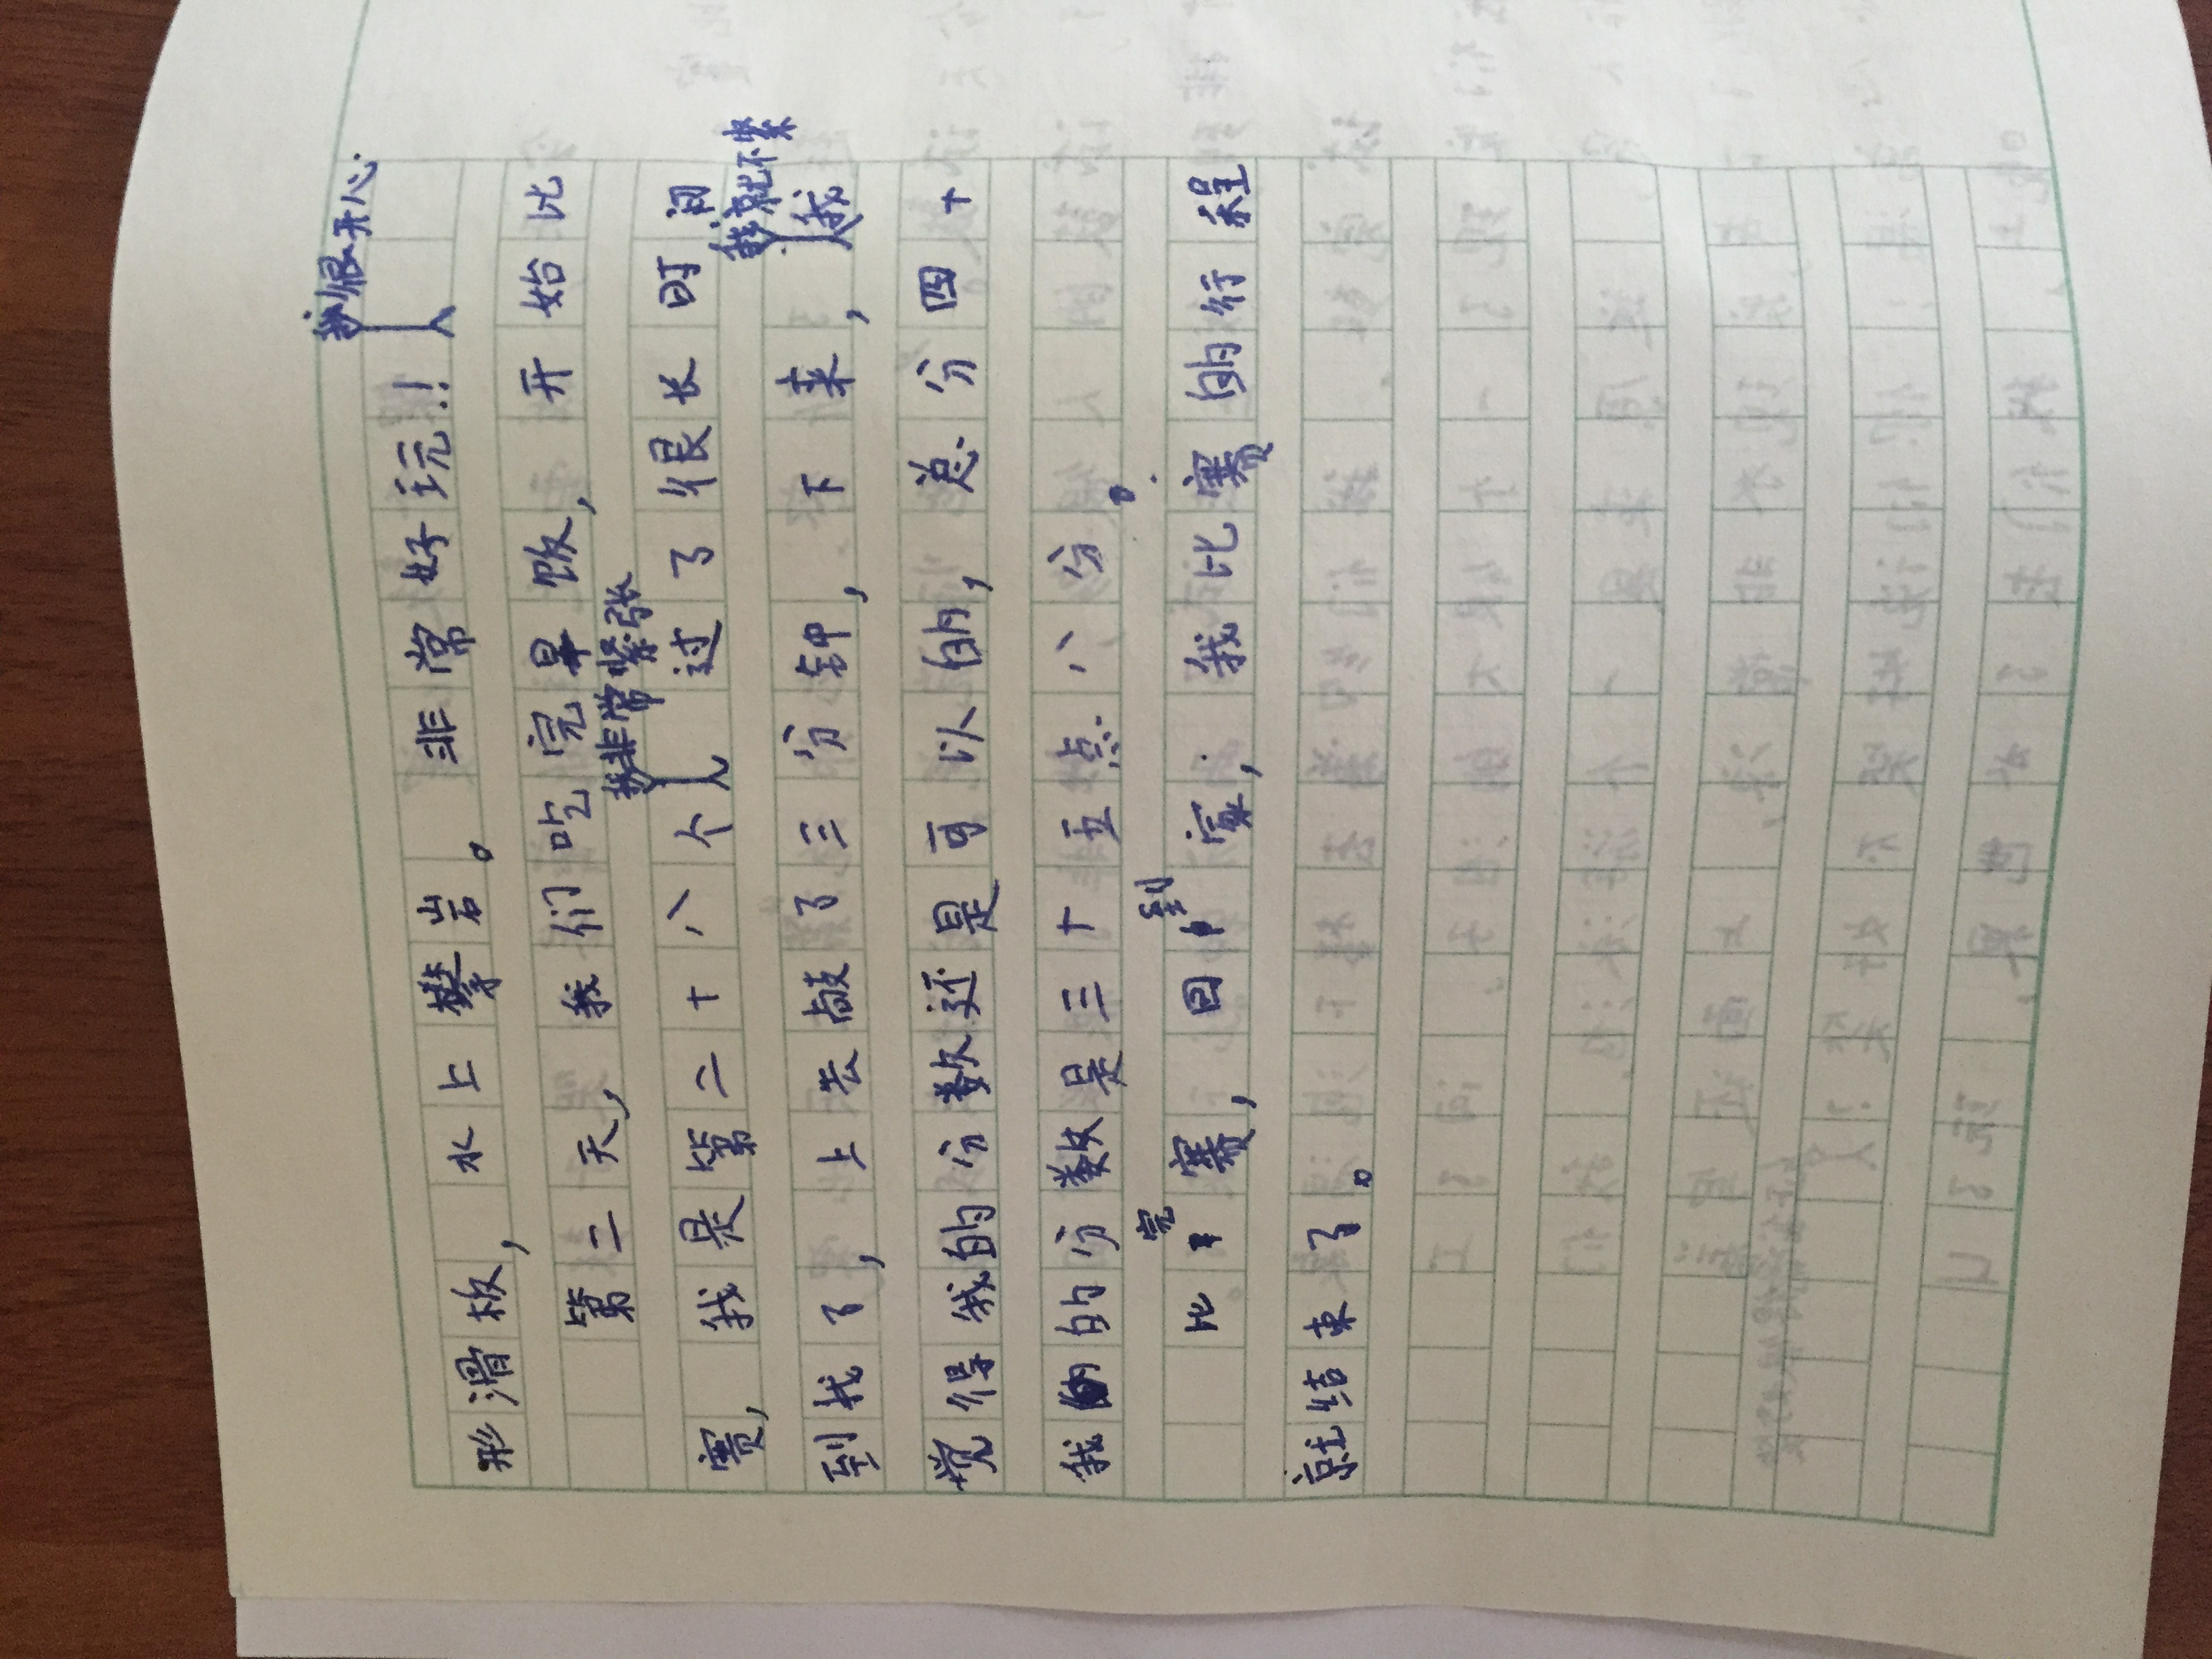 我很开心
形滑板,水上攀岩。非常好玩!!
第二天,我们吃完早饭,开始比
我非常紧张
赛,我是第二十八个过了很长时间
就不紧
到找了,上去敲了三分钟,下来,我
觉得我的分数还是可以的,总分四十
我的分数是三十五点八分。
完 到
比赛,回家,我比赛的行程
就结束了。